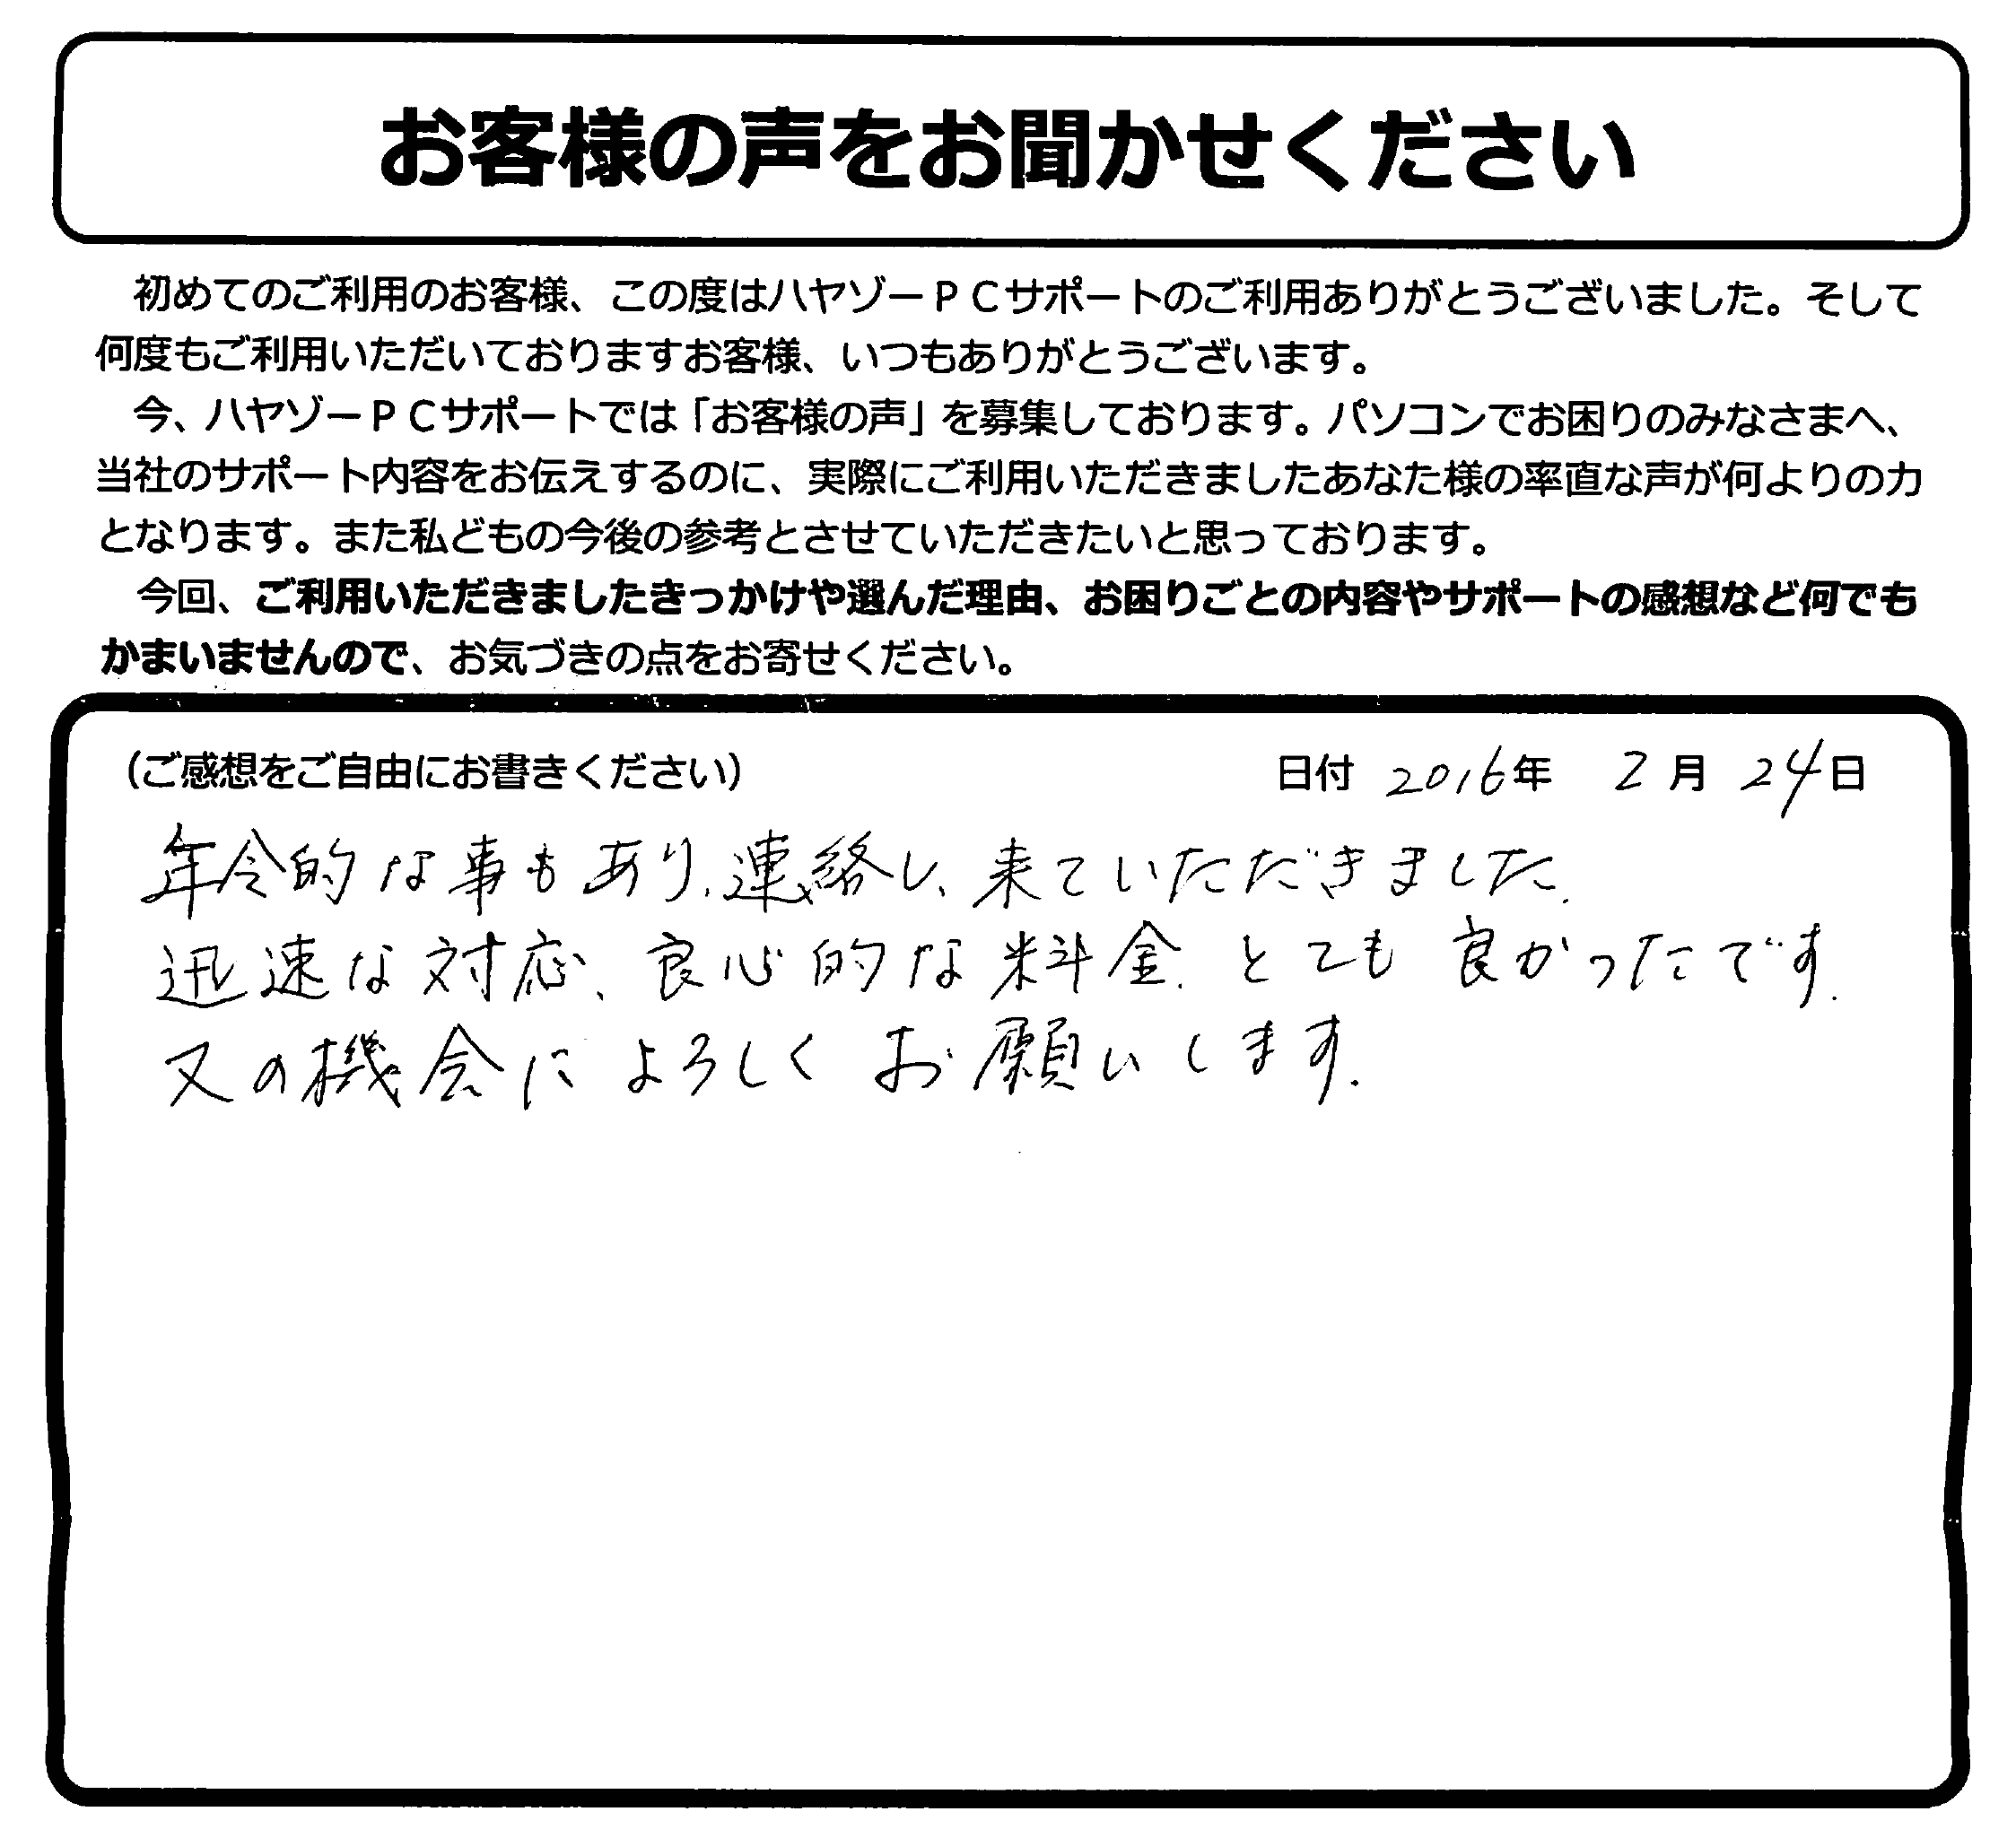 お客様の声をお聞かせください
初めてのご利用のお客様、この度はハヤゾーＰＣサポートのご利用ありがとうございました。そして
何度もご利用いただいておりますお客様、いつもありがとうございます。
今、ハヤゾーＰＣサポートでは「お客様の声」を募集しております。パソコンでお困りのみなさまへ、
当社のサポート内容をお伝えするのに、実際にご利用いただきましたあなた様の率直な声が何よりの力
となります。また私どもの今後の参考とさせていただきたいと思っております。
今回、ご利用いただきましたきっかけや選んだ理由、お困りごとの内容やサポートの感想など何でも
かまいませんので、お気づきの点をお寄せください。
（ご感想をご自由にお書きください） 日付 2016年 2月 24日
年令的な事もあり、連絡し、来ていただきました.
迅速な対応、良心的な料金. とても良かったです.
又の機会によろしくお願いします.